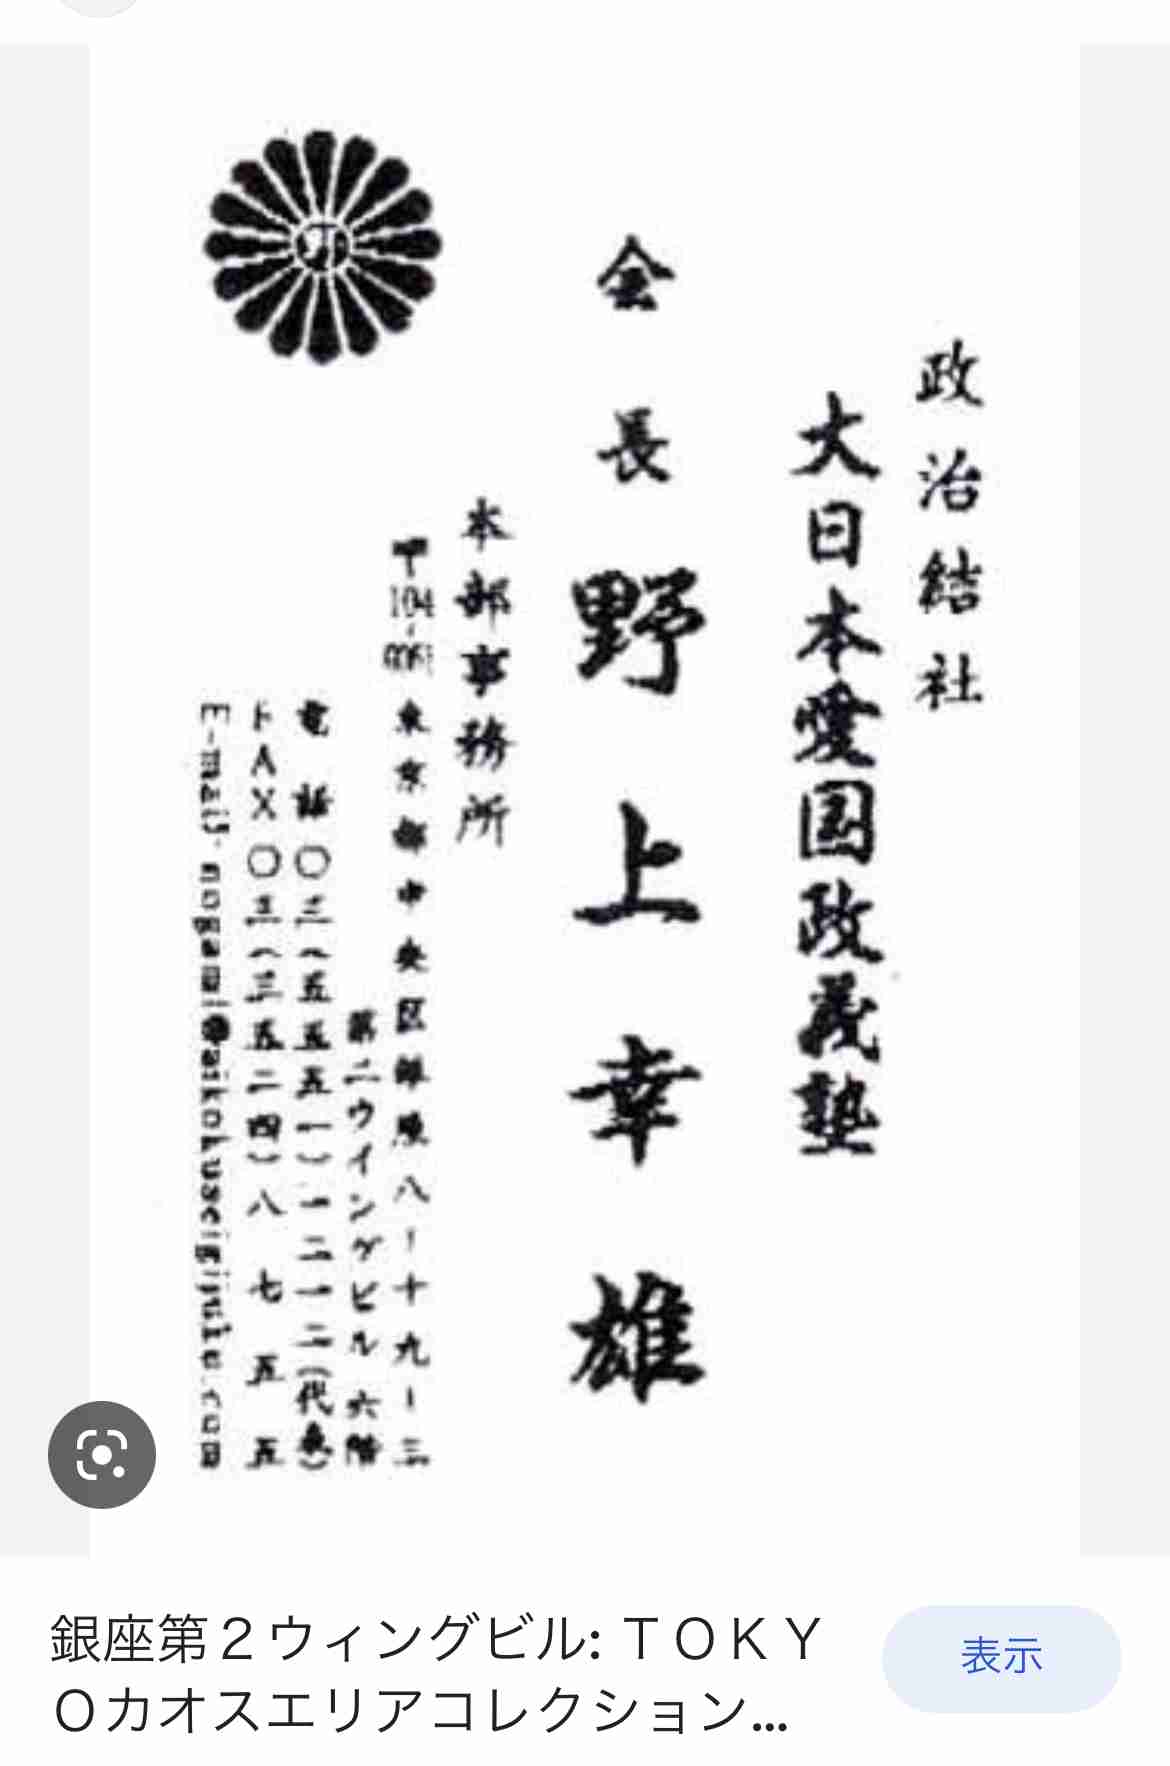 政治結社
大日本愛国政義塾
会長 野上幸雄
本部事務所
〒104 東京都中央区銀座八ー十九ー三
第二ウイングビル六階
電話〇三(五五五一)一二一二(代表)
FAX〇三(三五二四)八七五五
E-mail: nogami@aikokuseigijuku.com
銀座第２ウィングビル: ＴＯＫＹ
Ｏカオスエリアコレクション...
表示